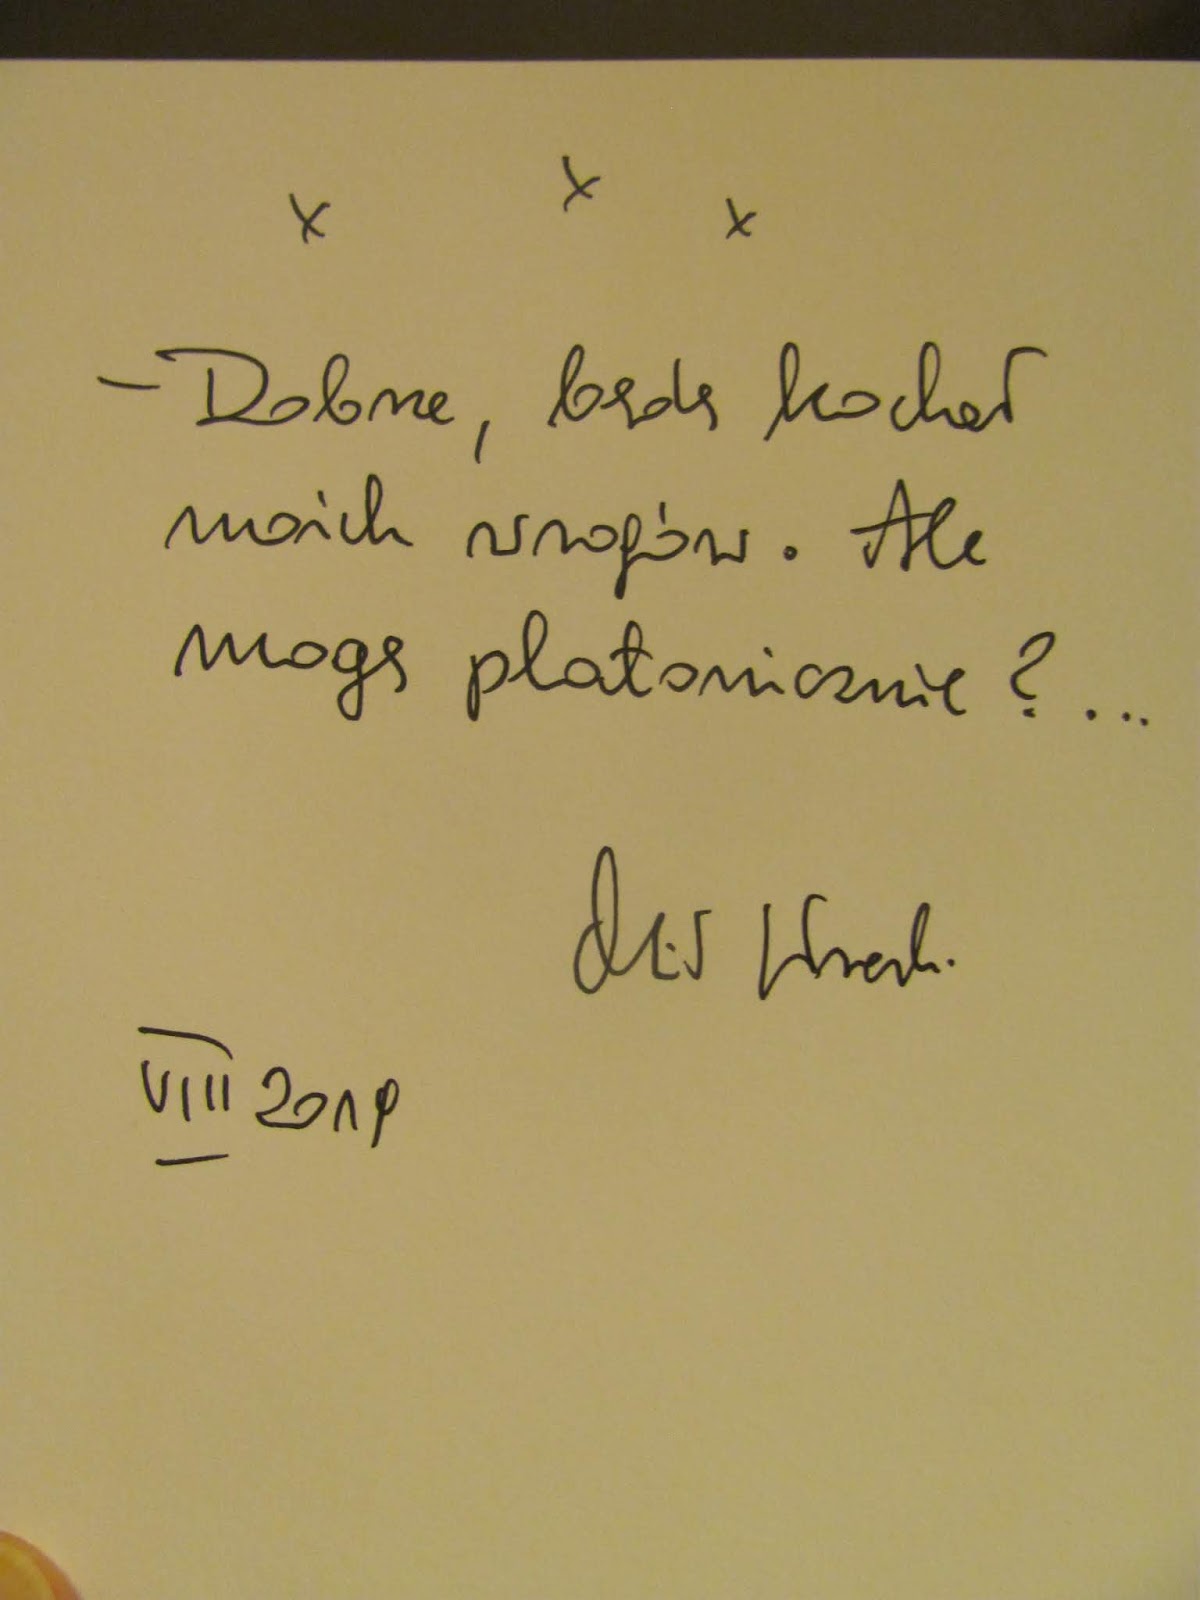 x x x
– Dobrze, będę kochał
moich wrogów. Ale
mogę platonicznie?...
VIII 2014